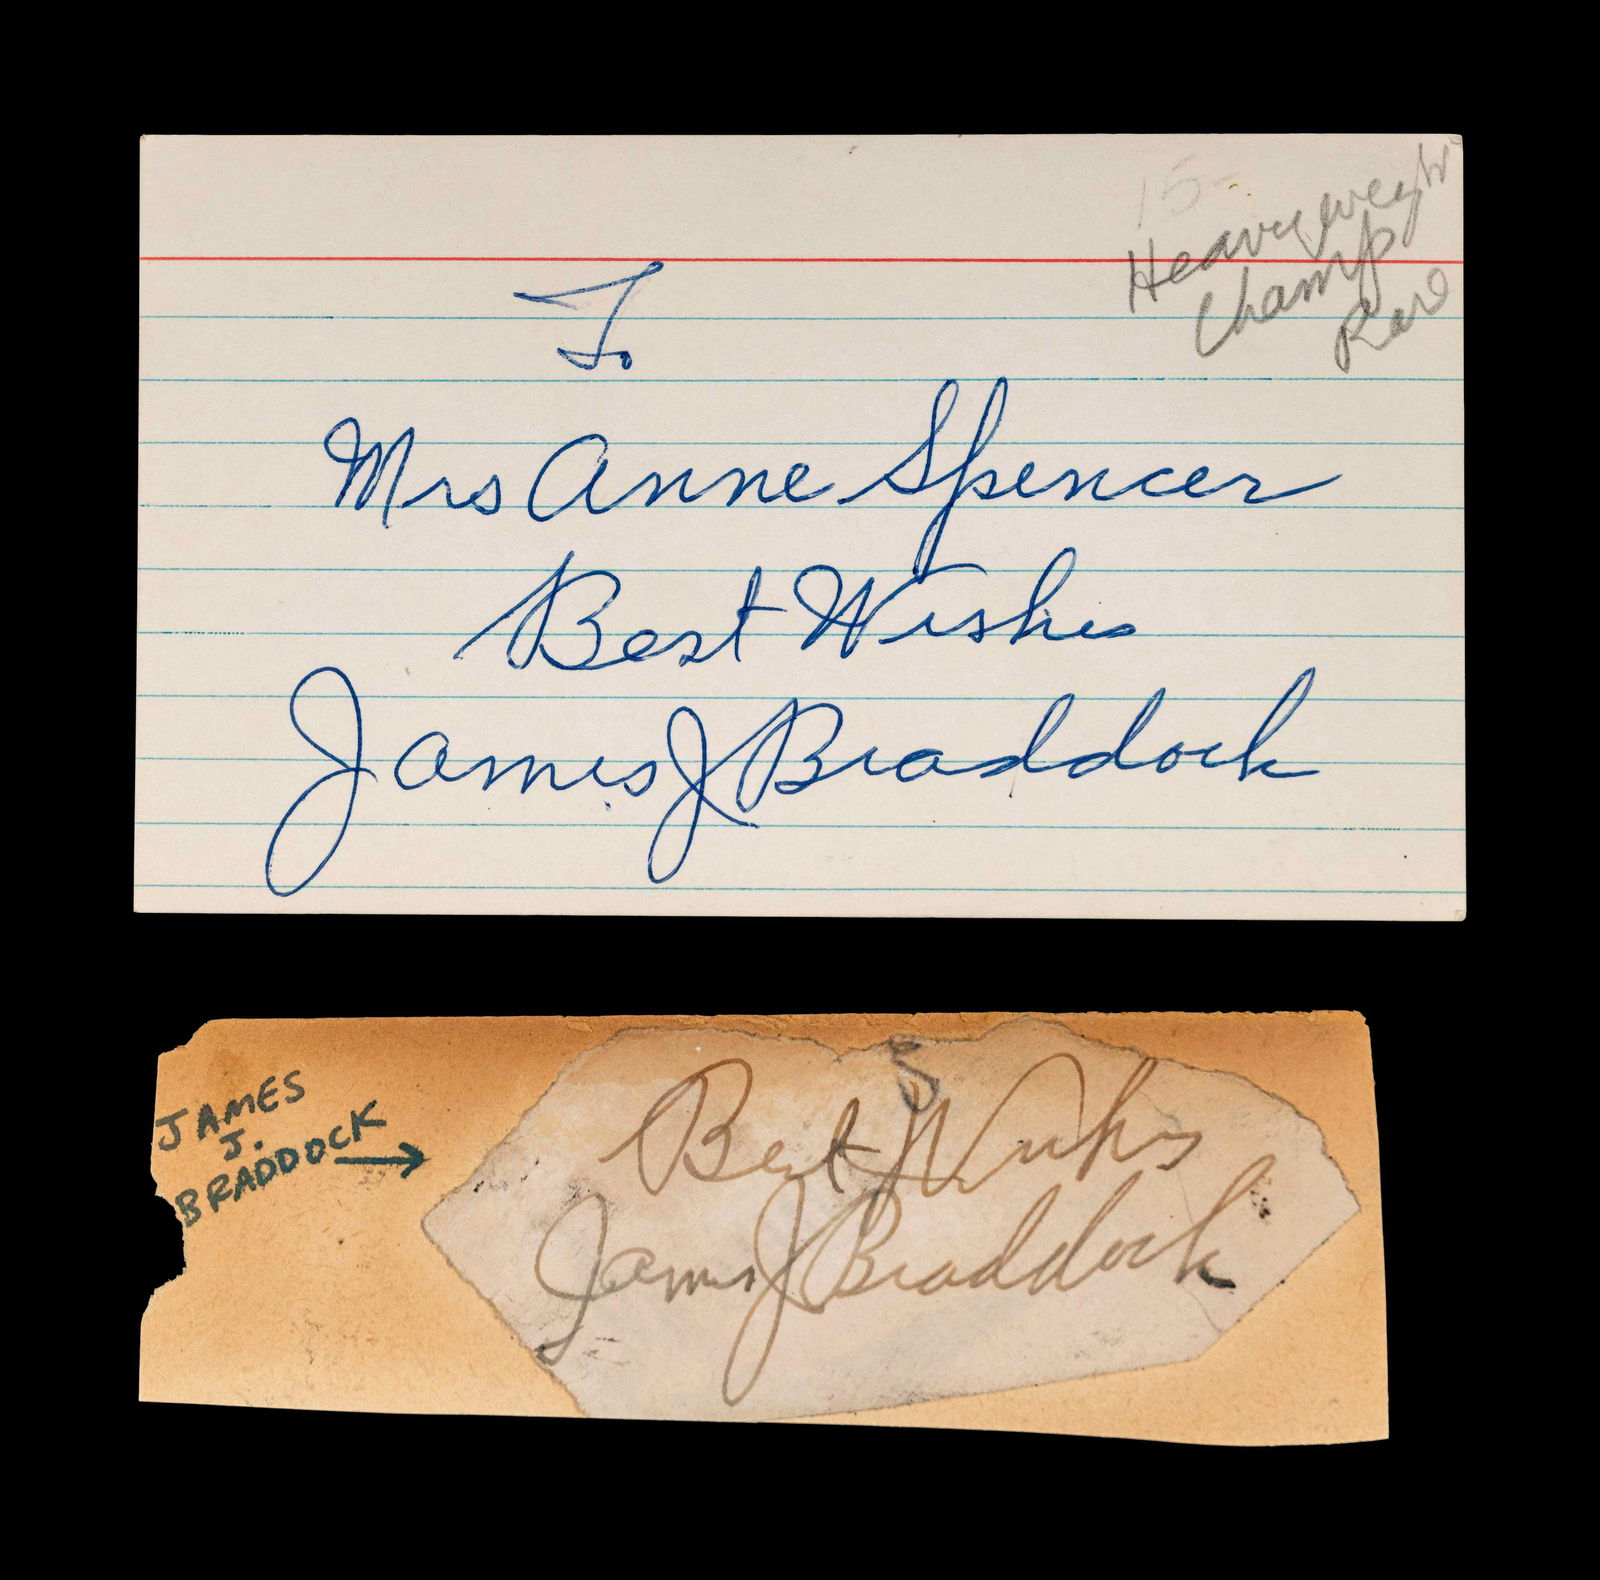 15-
Heavyweight
Champ
Rare
To
Mrs Anne Spencer
Best Wishes
James J Braddock
JAMES
J.
BRADDOCK →
Best Wishes
James J Braddock